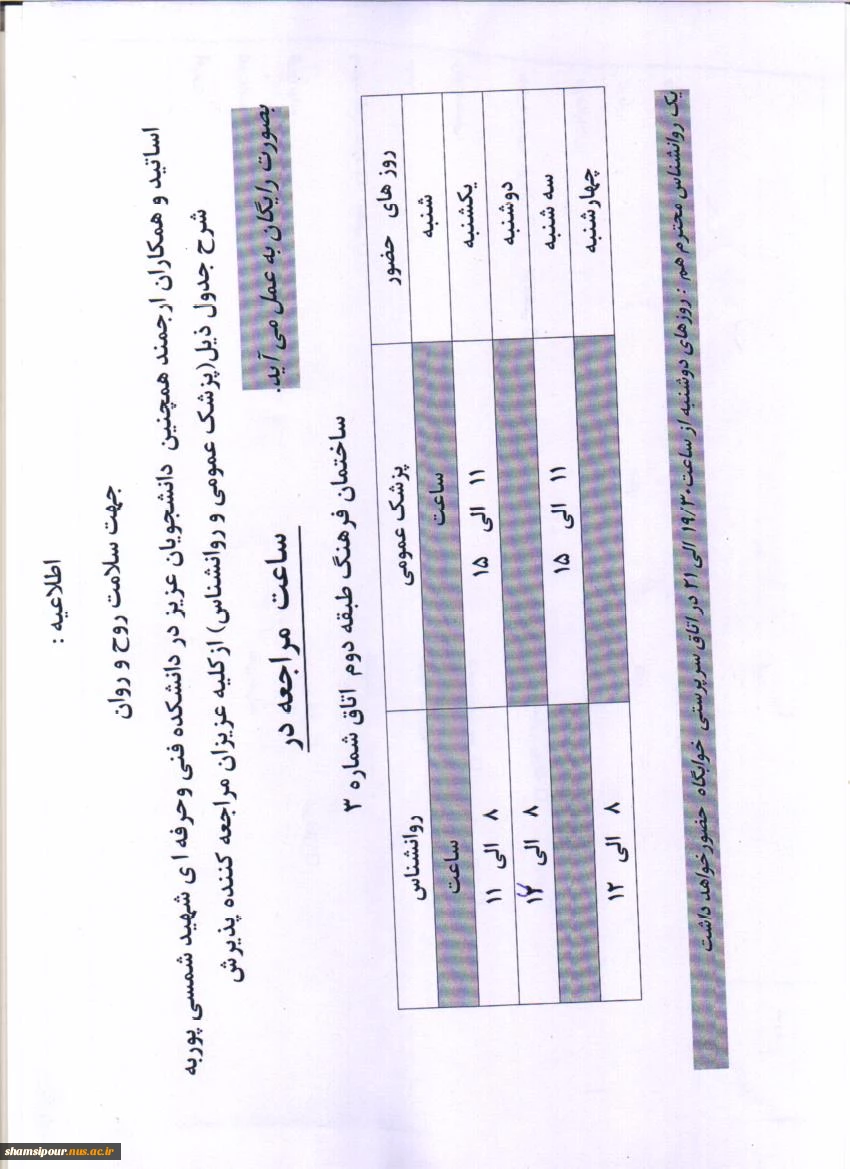 اطلاعیه :
جهت سلامت روح و روان
اساتید و همکاران ارجمند همچنین دانشجویان عزیز در دانشکده فنی وحرفه ای شهید شمسی پوربه
شرح جدول ذیل(پزشک عمومی و روانشناس) ازکلیه عزیزان مراجعه کننده پذیرش
بصورت رایگان به عمل می آید.
ساعت مراجعه در
ساختمان فرهنگ طبقه دوم اتاق شماره ۳
روز های حضور پزشک عمومی روانشناس
شنبه ساعت ساعت
یکشنبه ۱۱ الی ۱۵ ۸ الی ۱۱
دوشنبه ۸ الی
سه شنبه ۱۱ الی ۱۵
چهارشنبه ۸ الی ۱۲
یک روانشناس محترم هم : روزهای دوشنبه از ساعت ۱۹/۳۰ الی ۲۱ در اتاق سرپرستی خوابگاه حضورخواهد داشت
shamsipour.nus.ac.ir